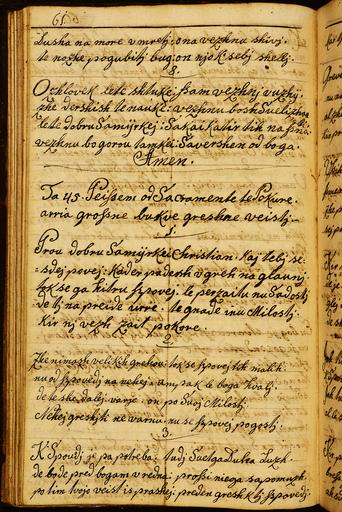 61
Dusha na more vmreti: ona vezhnu shivj.
te nozhe pogubitj bug: on njo k sebj shelj:
8.
O zhlovek lete shtuke: sam vezhnj vuzhj.
zhe dershish te nauke: vezhnu bosh Suelizhan
lete dobru Samirkej: Sakaj katir tik na
vezhnu bogorou tamkei: Savershen od boga.
Amen.
Ta 45. Peissem od Sacramente te Pokure.
arria grossne bukve greshne veistj.
1.
Prou dobru Samirkej Christian: Kaj tebj se:
sdej povej: Kader padesh v greh na glaunj
tok se ga hitru spovej. le perzaitu nu Sadostj
de tj na preide urre. te gnade inu Milostj
Kir nj vezh zait pokore.
2.
Zhe nimash velikih grehou: tok se spovej tik malih.
nu od spovedj na nekej: sak le boga hvalj.
de te she dalej varje. on po Suoj Milostj
Nekej greshih ne varnu: nu se spovej pogostj.
3.
K Spoudj je pa potreba. tudj Suetga Duha Luzh
de bode pred bogam vredna: prosse niega sa pomuzh
po tim tvojo veist isprashej: preden greshk tj spovedj.